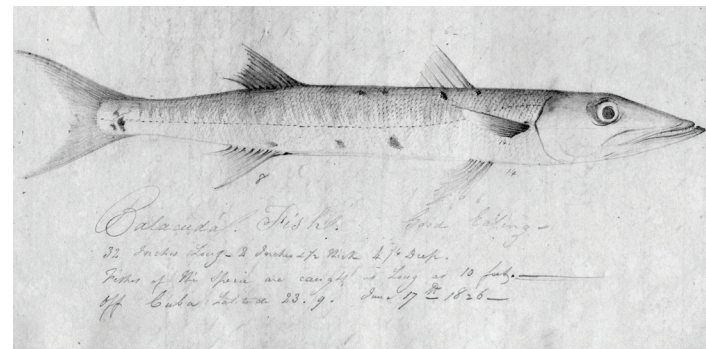 8
14
14
Baracuda. Fish. Good Eating-
32 Inches Long- 3 Inches 1/2 thick 4 1/2 Deep.
Fishes of this Specia are caught as Long as 10 feet.
Off Cuba Latitude 23. 9. June 17th 1826-